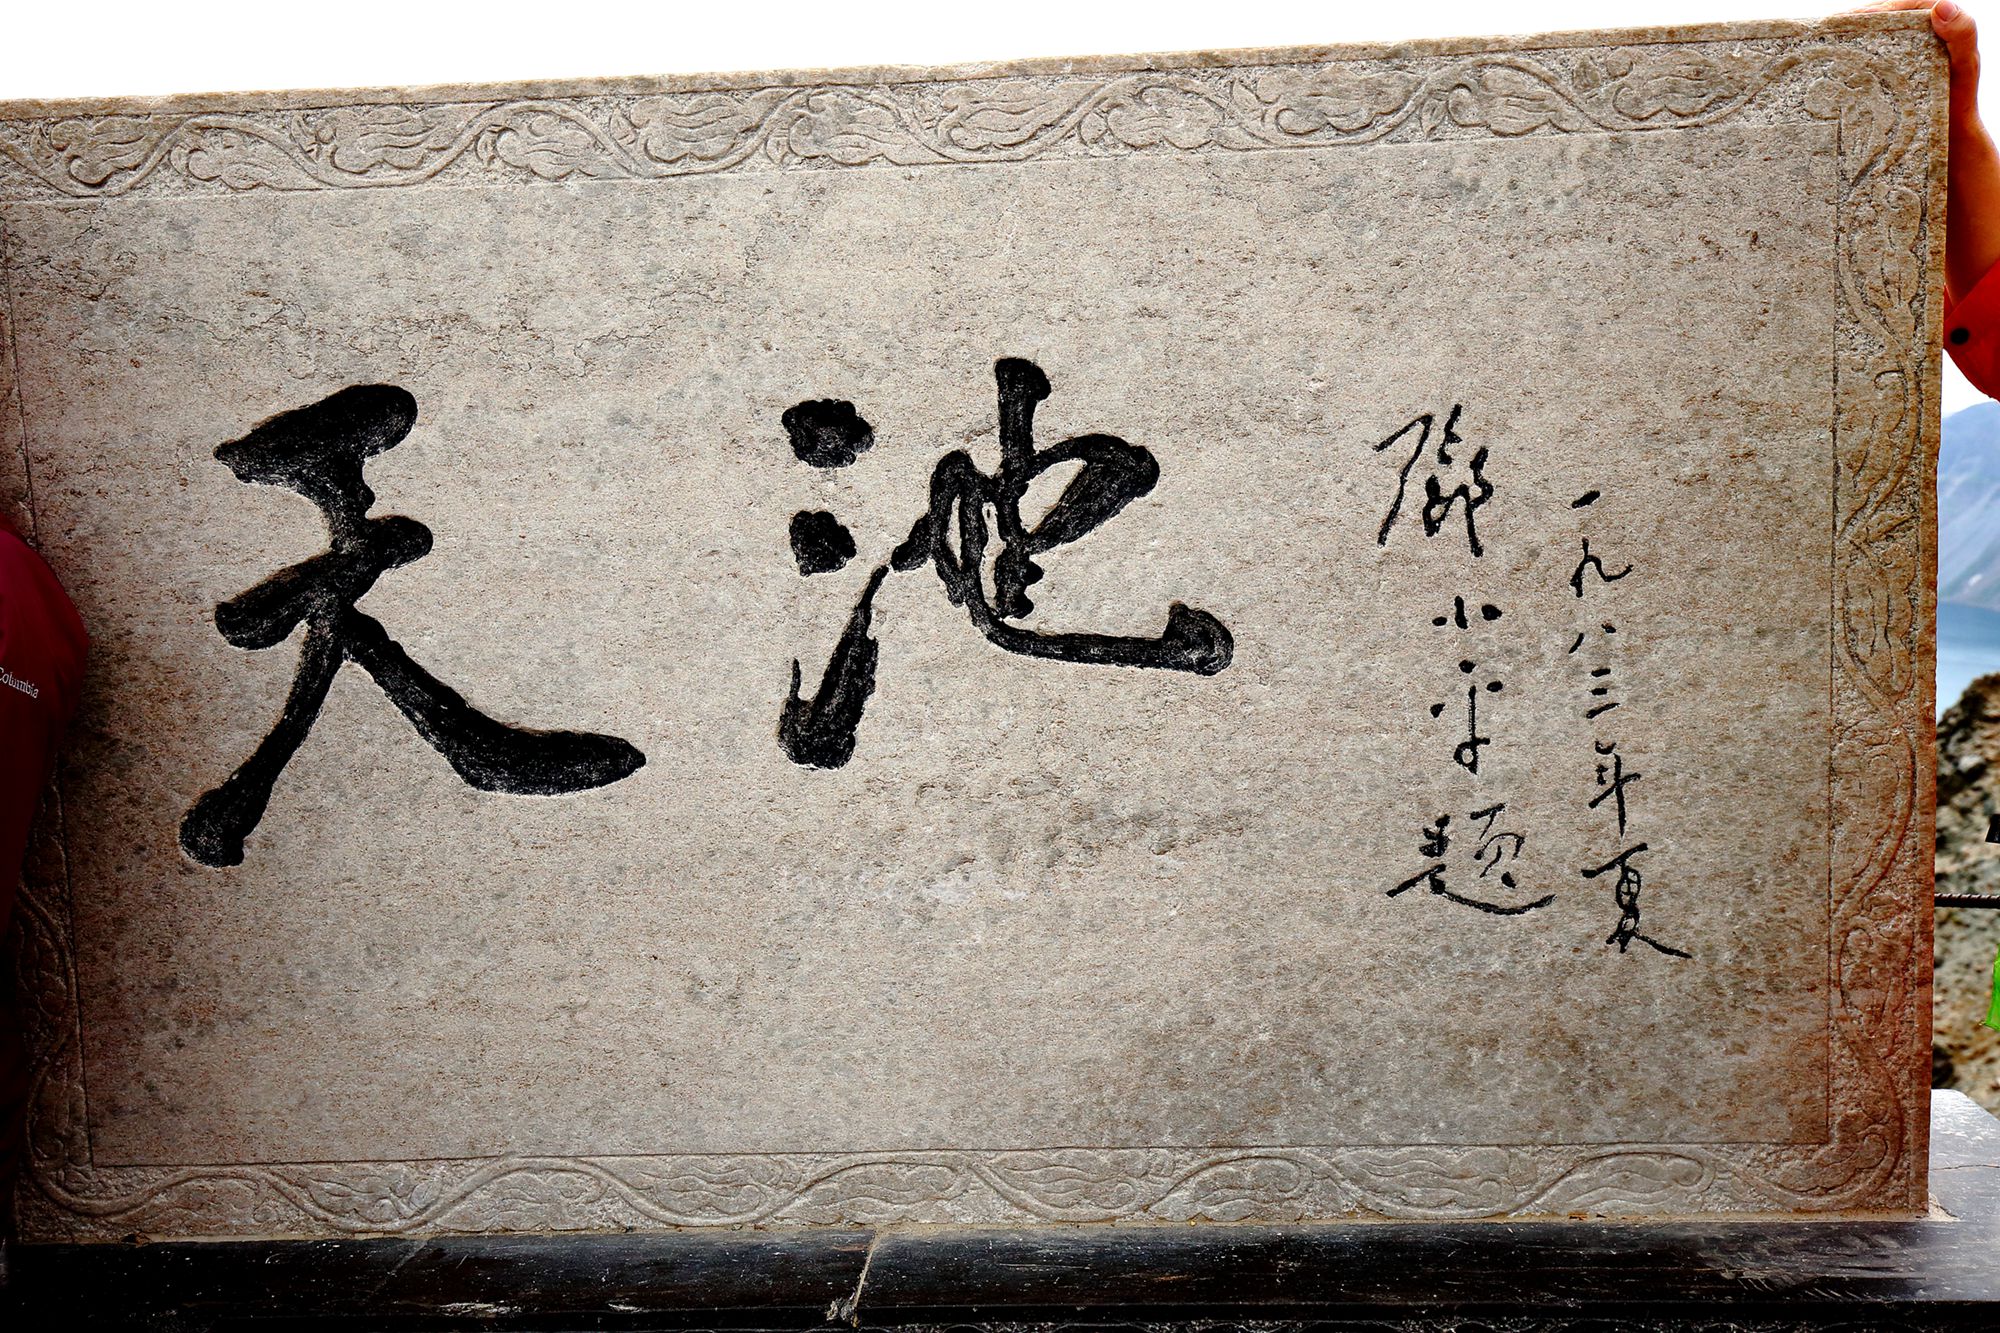 天池
一九八三年夏
邓小平題
Columbia